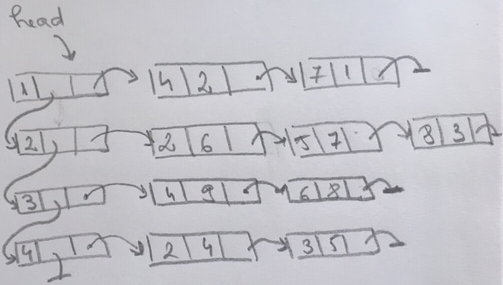 head
1 4 2 7 1
2 2 6 5 7 8 3
3 4 9 6 8
4 2 4 3 5